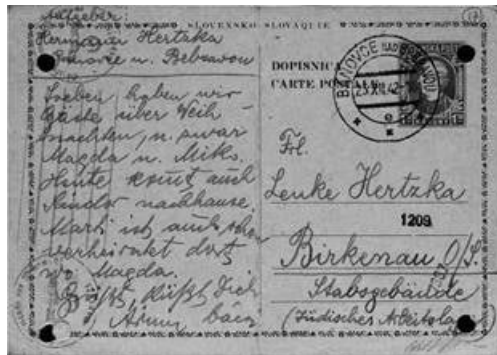 Aufgeber:
Hermann Hertzka
Banovce n. Bebravou
SLOVENSKO • SLOVAQUIE
17
DOPISNICA
CARTE POSTALE
BÁNOVCE NAD BEBRAVOU
23.XII.42
Soeben haben wir
Gäste über Weih-
nachten, u. zwar
Magda u. Miki.
Heute kommt auch
Sandor nachhause.
Marti ist auch schon
verheiratet dort
wo Magda.
Grüßt, küßt Dich
Frl.
Lenke Hertzka
1209
Birkenau O/S.
Stabsgebäude
(Jüdisches Arbeitslag